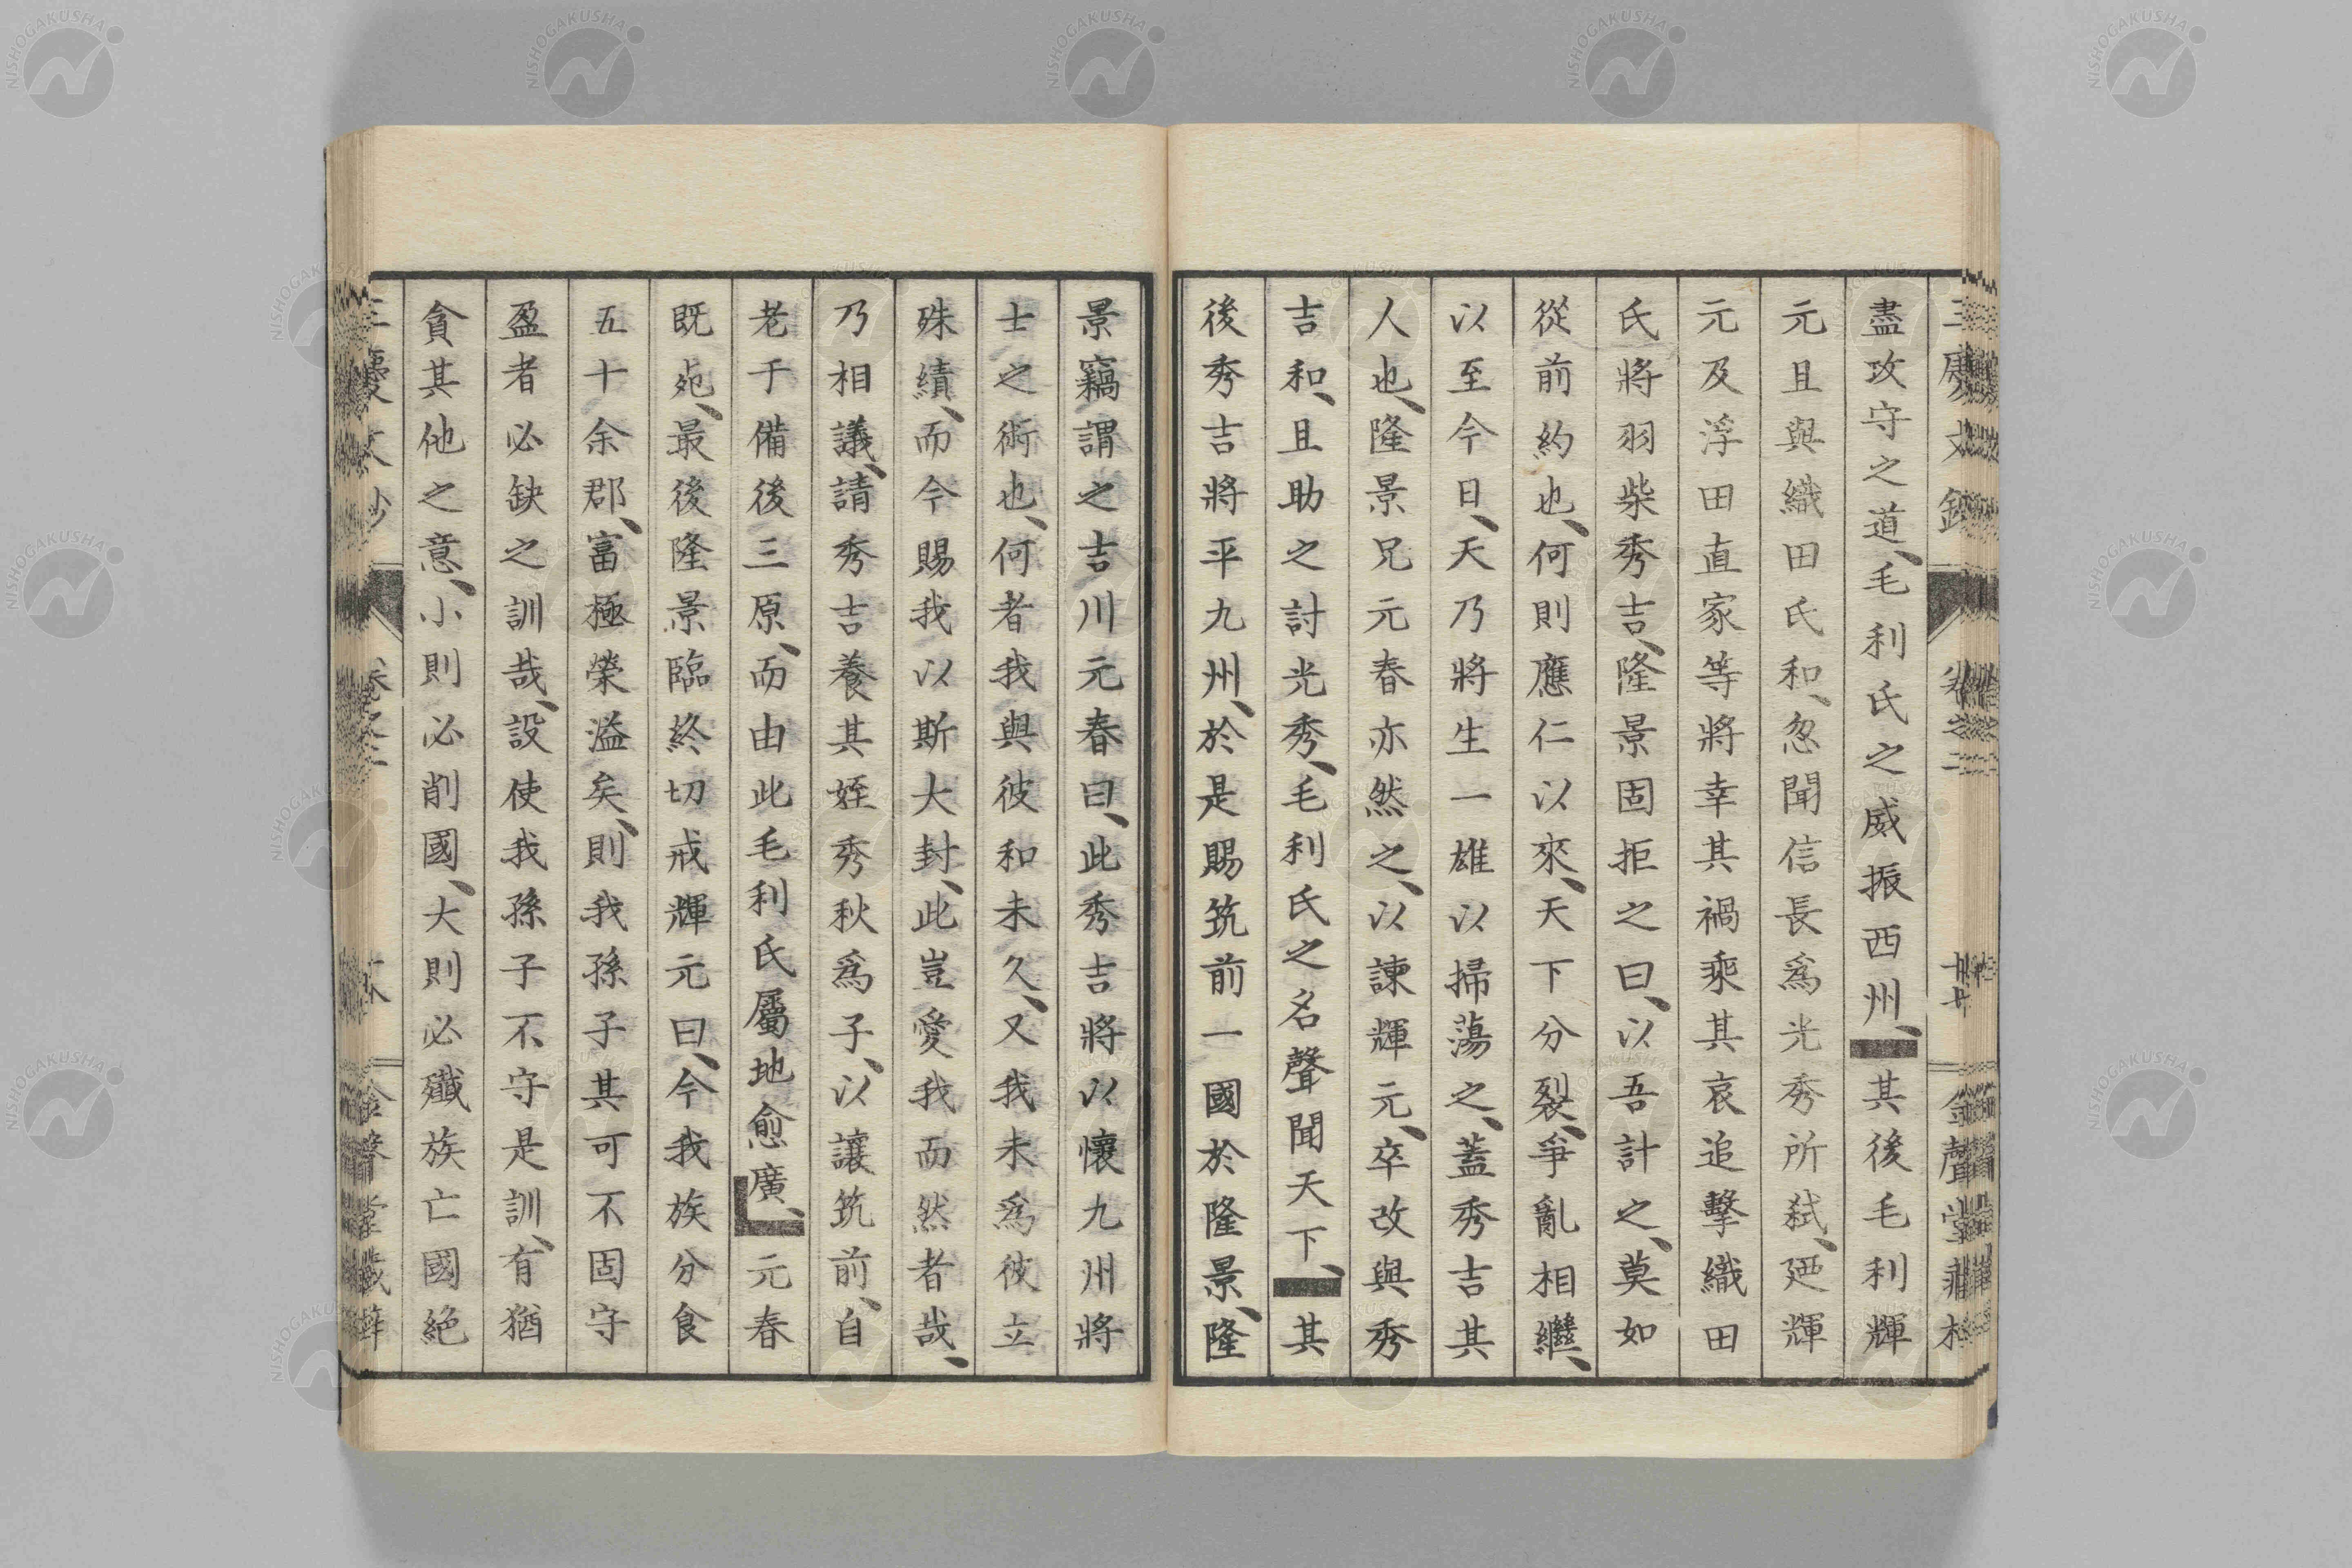 盡攻守之道、毛利氏之威振西州、其後毛利輝
元且與織田氏和、忽聞信長爲光秀所弑、廼輝
元及浮田直家等將幸其禍乘其哀追擊織田
氏將羽柴秀吉、隆景固拒之曰、以吾計之、莫如
從前約也、何則應仁以來、天下分裂、爭亂相繼、
以至今日、天乃將生一雄以掃蕩之、蓋秀吉其
人也、隆景兄元春亦然之、以諫輝元、卒改與秀
吉和、且助之討光秀、毛利氏之名聲聞天下、其
後秀吉將平九州、於是賜筑前一國於隆景、隆
景竊謂之吉川元春曰、此秀吉將以懷九州將
士之術也、何者我與彼和未久、又我未爲彼立
殊績、而今賜我以斯大封、此豈愛我而然者哉、
乃相議、請秀吉養其姪秀秋爲子、以讓筑前、自
老于備後三原、而由此毛利氏屬地愈廣、元春
既死、最後隆景臨終切戒輝元曰、今我族分食
五十余郡、富極榮溢矣、則我孫子其可不固守
盈者必缺之訓哉、設使我孫子不守是訓、有猶
貪其他之意、小則必削國、大則必殲族亡國絕
NISHOGAKUSHA